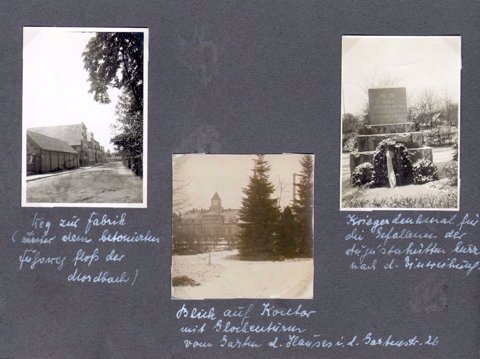 Weg zur Fabrik
(unter dem betonierten
Fußweg floß der
Nordbach)
Blick auf Kontor
mit Glockenturm
vom Garten d. Hauses i. d. Gartenstr. 26
Kriegerdenkmal für
die Gefallenen der
Augustahütte kurz
nach d. Einweihung